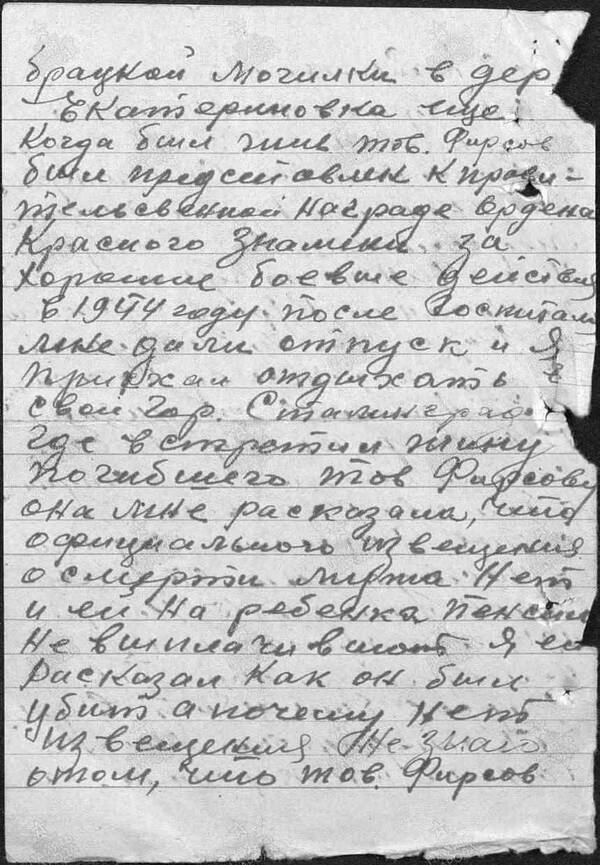 брацкой могилки в дер
Екатериновка еще.
Когда был жив тов. Фирсов
был представлен к прави-
тельсвенной награде Ордена
Красного Знамени за
хорошие боевые действия
в 1944 году после госпиталя
мне дали отпуск и я
приехал отдыхать в
свой гор. Сталинград
где встретил жину
погибшего тов Фирсову
она мне расказала, что
официального извещения
о смерти мужа нет
и ей на ребенка пенсии
не выплачивают я ей
расказал как он был
убит а почему нет
извещения не знаю
отом, что тов. Фирсов